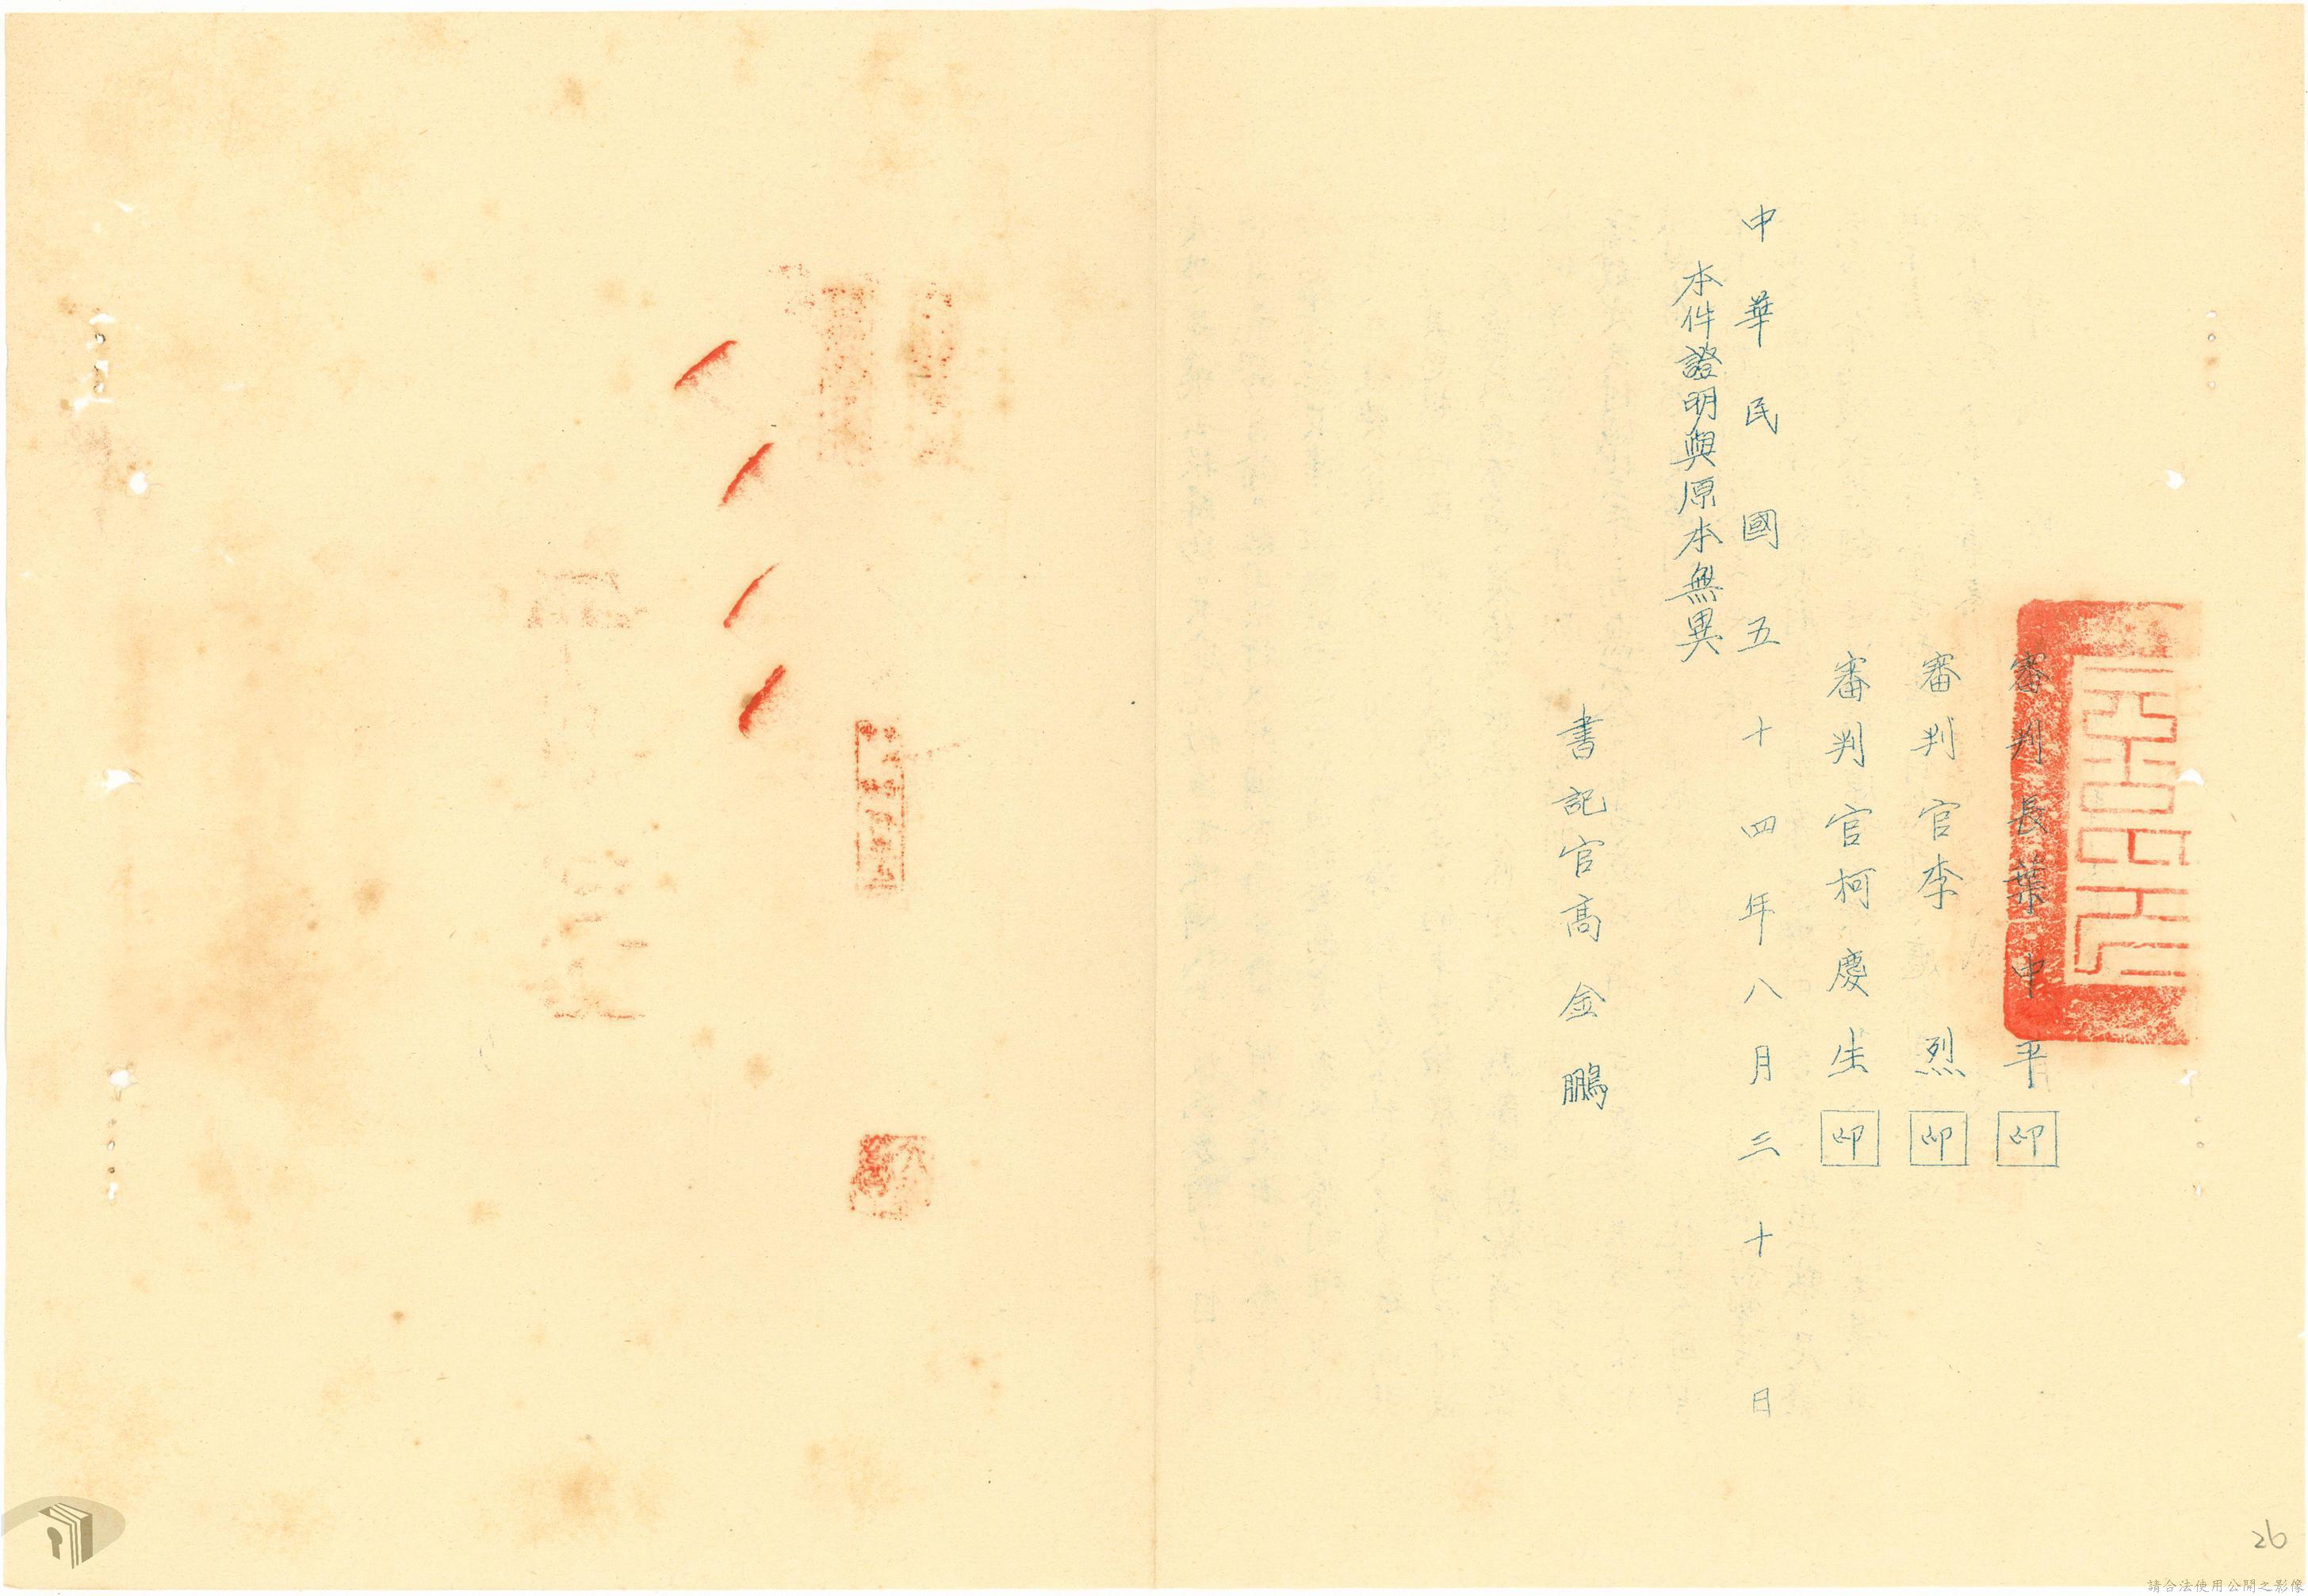 審判長葉中平印
審判官李烈印
審判官柯慶生印
中華民國五十四年八月三十日
本件證明與原本無異
書記官高金鵬
26
請合法使用公開之影像